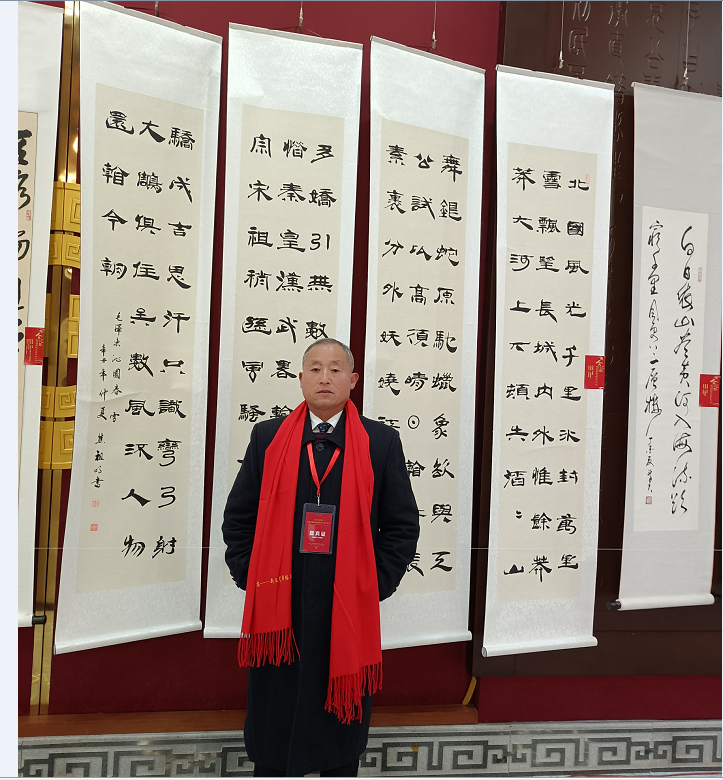 白日依山盡黄河入海流欲
窮千里目更上一層樓
北國風光千里冰封萬里
雪飄望長城内外惟餘莽
莽大河上下頓失滔〻山
舞銀蛇原馳蠟象欲與天
公試比高須晴日
素裹分外妖嬈
多嬌引無數
惜秦皇漢武畧輸
宗宋祖稍遜風騷
驕成吉思汗只識彎弓射
大鵰俱往矣數風流人物
還看今朝
毛澤東沁園春雪
辛丑年仲夏
嘉宾证